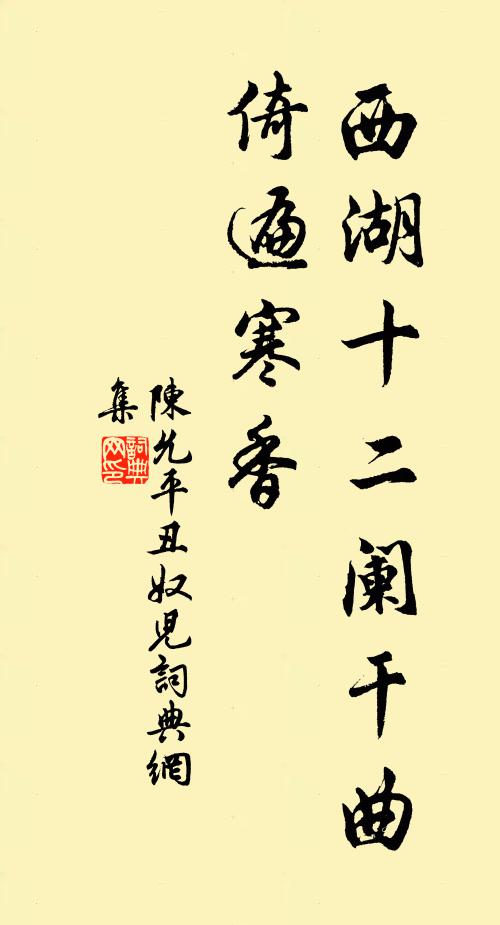 西湖十二阑干曲
倚遍寒香
陳允平丑奴兒詞典網
集
詞典网印